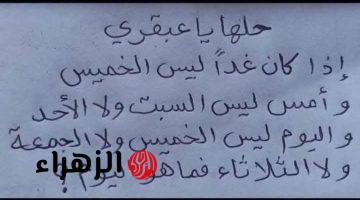 حلها يا عبقري
إذا كان غداً ليس الخميس
و أمس ليس السبت ولا الأحد
و اليوم ليس الخميس ولا الجمعة
ولا الثلاثاء فما هو اليوم؟
الزهراء